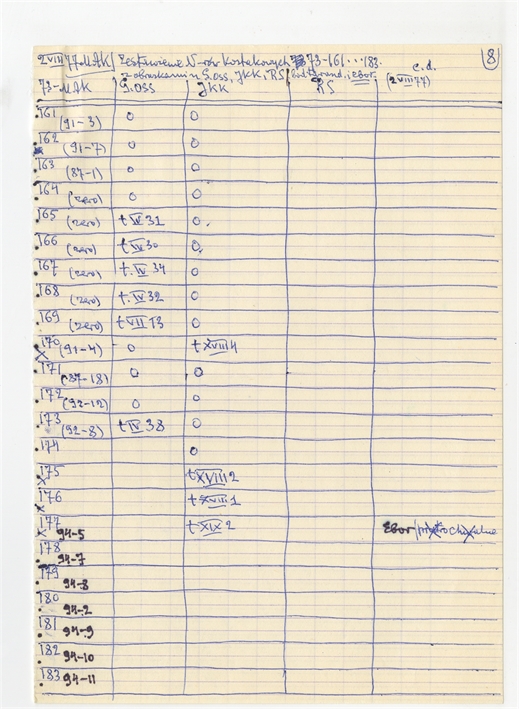 2VIII77-MAK Zestawienie N-rów Kostakowych 73-161...183. 8
z obrazkami u S.OSS, JKK, RS, c.d.
73-MAK S.OSS JKK RS (2VIII77)
161 (91-3) 0 0
162 (91-7) 0 0
163 (87-1) 0 0
164 (zero) 0 0
165 (zero) t IV 31 0
166 (zero) t IV 30 0
167 (zero) t. IV 34 0
168 (zero) t. IV 32 0
169 (zero) t VII 13 0
170 (91-4) 0 t XVIII 4
171 (87-18) 0 0
172 (92-12) 0 0
173 (92-8) t IV 38 0
174 0
175 t XVIII 2
176 t XVIII 1
177 94-5 t XIX 2 Ebor
178 94-7
179 94-8
180 94-2
181 94-9
182 94-10
183 94-11